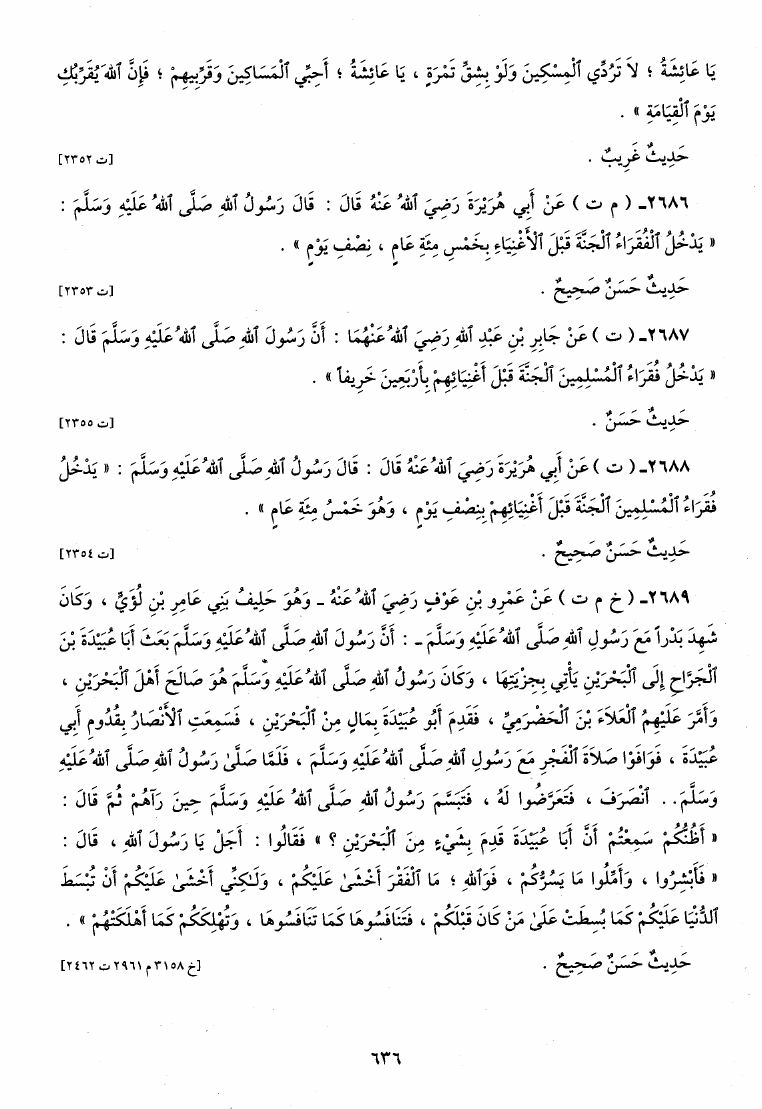 يَا عَائِشَةُ ؛ لاَ تَرُدِّي ٱلْمِسْكِينَ وَلَوْ بِشِقِّ تَمْرَةٍ ، يَا عَائِشَةُ ؛ أَحِبِّي ٱلْمَسَاكِينَ وَقَرِّبِيهِمْ ؛ فَإِنَّ ٱللهَ يُقَرِّبُكِ
يَوْمَ ٱلْقِيَامَةِ » .
حَدِيثٌ غَرِيبٌ . [ت ٢٣٥٢]
٢٦٨٦ـ ( م ت ) عَنْ أَبِي هُرَيْرَةَ رَضِيَ ٱللهُ عَنْهُ قَالَ : قَالَ رَسُولُ ٱللهِ صَلَّى ٱللهُ عَلَيْهِ وَسَلَّمَ :
« يَدْخُلُ ٱلْفُقَرَاءُ ٱلْجَنَّةَ قَبْلَ ٱلْأَغْنِيَاءِ بِخَمْسِ مِئَةِ عَامٍ ، نِصْفِ يَوْمٍ » .
حَدِيثٌ حَسَنٌ صَحِيحٌ . [ت ٢٣٥٣]
٢٦٨٧ـ ( ت ) عَنْ جَابِرِ بْنِ عَبْدِ ٱللهِ رَضِيَ ٱللهُ عَنْهُمَا : أَنَّ رَسُولَ ٱللهِ صَلَّى ٱللهُ عَلَيْهِ وَسَلَّمَ قَالَ :
« يَدْخُلُ فُقَرَاءُ ٱلْمُسْلِمِينَ ٱلْجَنَّةَ قَبْلَ أَغْنِيَائِهِمْ بِأَرْبَعِينَ خَرِيفاً » .
حَدِيثٌ حَسَنٌ . [ت ٢٣٥٥]
٢٦٨٨ـ ( ت ) عَنْ أَبِي هُرَيْرَةَ رَضِيَ ٱللهُ عَنْهُ قَالَ : قَالَ رَسُولُ ٱللهِ صَلَّى ٱللهُ عَلَيْهِ وَسَلَّمَ : « يَدْخُلُ
فُقَرَاءُ ٱلْمُسْلِمِينَ ٱلْجَنَّةَ قَبْلَ أَغْنِيَائِهِمْ بِنِصْفِ يَوْمٍ ، وَهُوَ خَمْسُ مِئَةِ عَامٍ » .
حَدِيثٌ حَسَنٌ صَحِيحٌ . [ت ٢٣٥٤]
٢٦٨٩ـ ( خ م ت ) عَنْ عَمْرِو بْنِ عَوْفٍ رَضِيَ ٱللهُ عَنْهُ ـ وَهُوَ حَلِيفُ بَنِي عَامِرِ بْنِ لُؤَيٍّ ، وَكَانَ
شَهِدَ بَدْراً مَعَ رَسُولِ ٱللهِ صَلَّى ٱللهُ عَلَيْهِ وَسَلَّمَ ـ : أَنَّ رَسُولَ ٱللهِ صَلَّى ٱللهُ عَلَيْهِ وَسَلَّمَ بَعَثَ أَبَا عُبَيْدَةَ بْنَ
ٱلْجَرَّاحِ إِلَى ٱلْبَحْرَيْنِ يَأْتِي بِجِزْيَتِهَا ، وَكَانَ رَسُولُ ٱللهِ صَلَّى ٱللهُ عَلَيْهِ وَسَلَّمَ هُوَ صَالَحَ أَهْلَ ٱلْبَحْرَيْنِ ،
وَأَمَّرَ عَلَيْهِمُ ٱلْعَلاَءَ بْنَ ٱلْحَضْرَمِيِّ ، فَقَدِمَ أَبُو عُبَيْدَةَ بِمَالٍ مِنَ ٱلْبَحْرَيْنِ ، فَسَمِعَتِ ٱلْأَنْصَارُ بِقُدُومِ أَبِي
عُبَيْدَةَ ، فَوَافَوْا صَلاَةَ ٱلْفَجْرِ مَعَ رَسُولِ ٱللهِ صَلَّى ٱللهُ عَلَيْهِ وَسَلَّمَ ، فَلَمَّا صَلَّىٰ رَسُولُ ٱللهِ صَلَّى ٱللهُ عَلَيْهِ
وَسَلَّمَ.. ٱنْصَرَفَ ، فَتَعَرَّضُوا لَهُ ، فَتَبَسَّمَ رَسُولُ ٱللهِ صَلَّى ٱللهُ عَلَيْهِ وَسَلَّمَ حِينَ رَآهُمْ ثُمَّ قَالَ :
« أَظُنُّكُمْ سَمِعْتُمْ أَنَّ أَبَا عُبَيْدَةَ قَدِمَ بِشَيْءٍ مِنَ ٱلْبَحْرَيْنِ ؟ » فَقَالُوا : أَجَلْ يَا رَسُولَ ٱللهِ ، قَالَ :
« فَأَبْشِرُوا ، وَأَمِّلُوا مَا يَسُرُّكُمْ ، فَوَٱللهِ ؛ مَا ٱلْفَقْرَ أَخْشَىٰ عَلَيْكُمْ ، وَلَـٰكِنِّي أَخْشَىٰ عَلَيْكُمْ أَنْ تُبْسَطَ
ٱلدُّنْيَا عَلَيْكُمْ كَمَا بُسِطَتْ عَلَىٰ مَنْ كَانَ قَبْلَكُمْ ، فَتَنَافَسُوهَا كَمَا تَنَافَسُوهَا ، وَتُهْلِكَكُمْ كَمَا أَهْلَكَتْهُمْ » .
حَدِيثٌ حَسَنٌ صَحِيحٌ . [خ ٣١٥٨ م ٢٩٦١ ت ٢٤٦٢]
٦٣٦